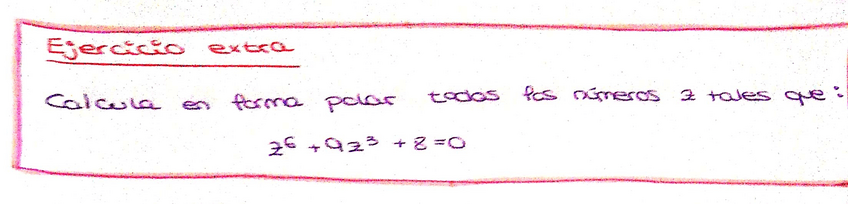 Ejercicio extra
Calcula en forma polar todos los números z tales que:
z⁶ + 9z³ + 8 = 0